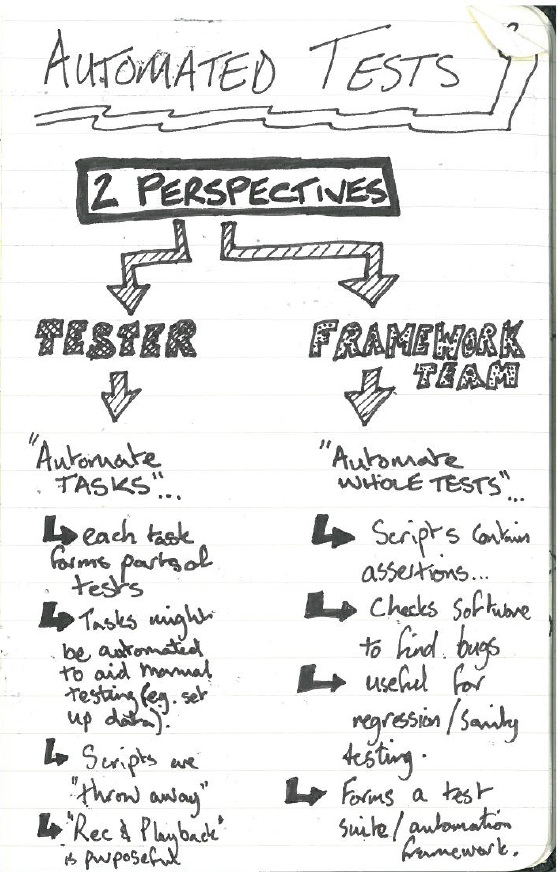 AUTOMATED TESTS
2 PERSPECTIVES
TESTER
"Automate
TASKS"...
each task
forms parts of
tests
Tasks might
be automated
to aid manual
testing (eg. set
up data).
Scripts are
"throw away"
"Rec & Playback"
is purposeful
FRAMEWORK
TEAM
"Automate
WHOLE TESTS"...
Scripts contain
assertions...
Checks software
to find bugs
useful for
regression/Sanity
testing.
Forms a test
suite/automation
framework.